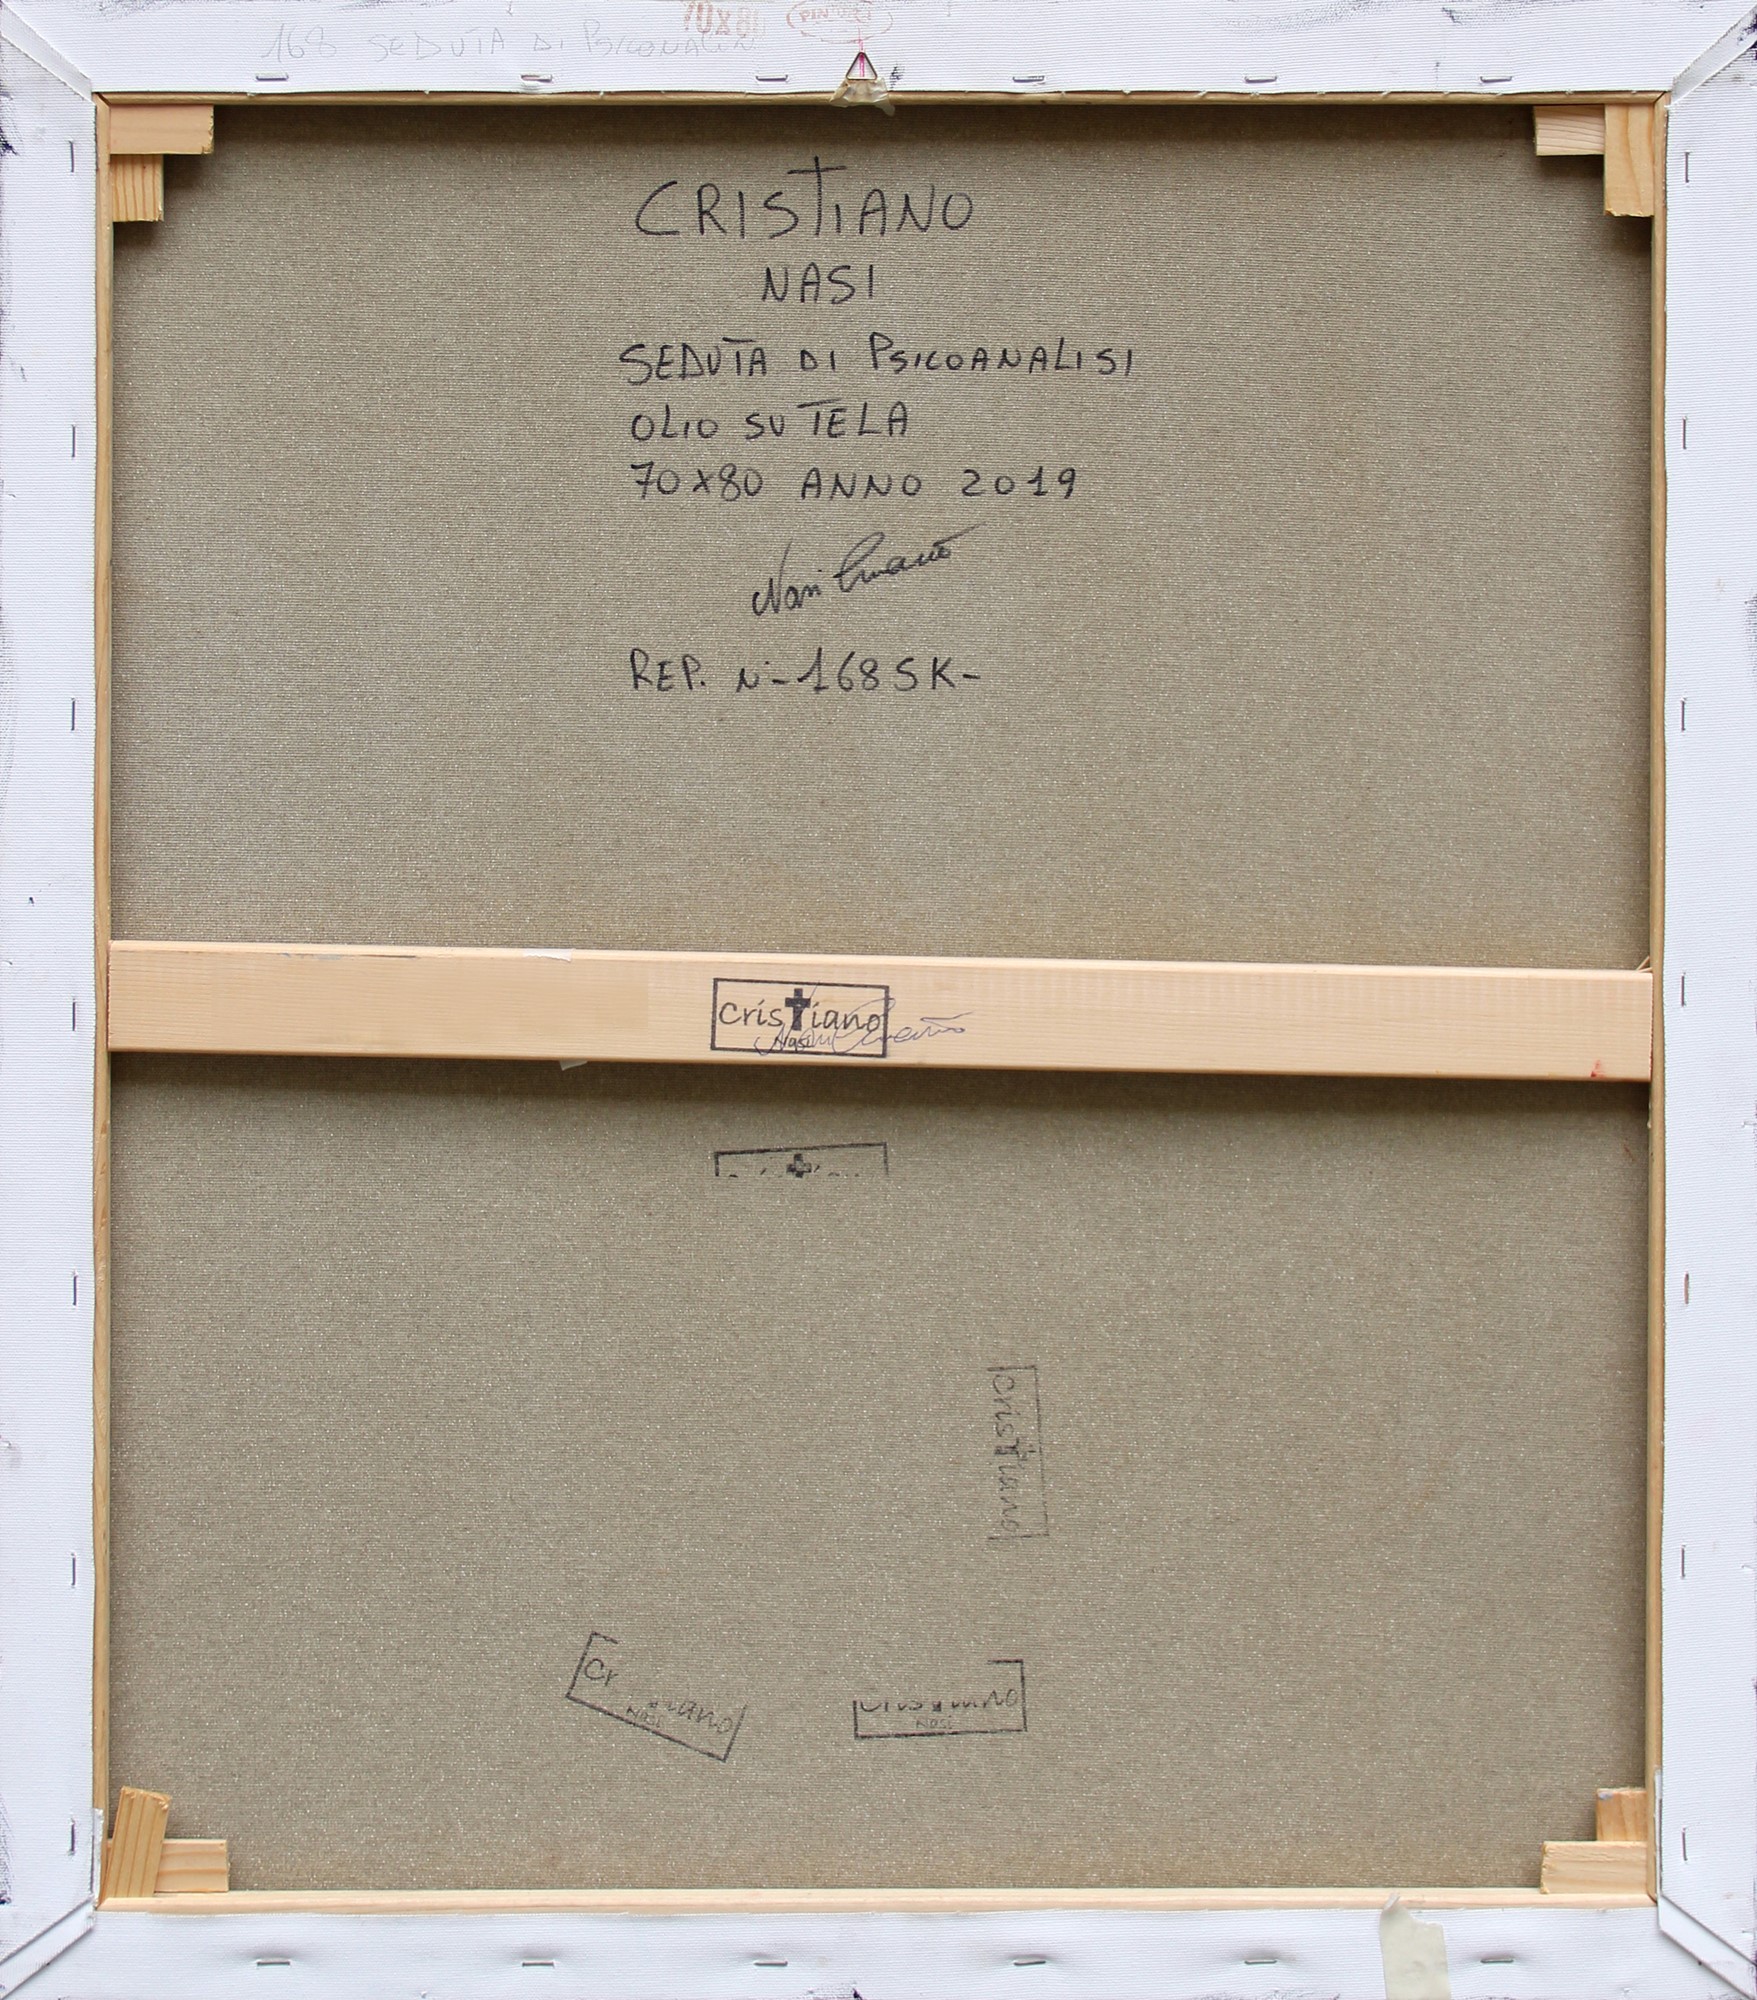 70x80
168 SEDUTA DI PSICONALISI
CRISTIANO
NASI
SEDUTA DI PSICOANALISI
OLIO SU TELA
70x80 ANNO 2019
Nasi Cristiano
REP. N-168SK-
Cristiano
Nasi
Nasi Cristiano
Cristiano
Cr iano
Nasi
Cristiano
Nasi